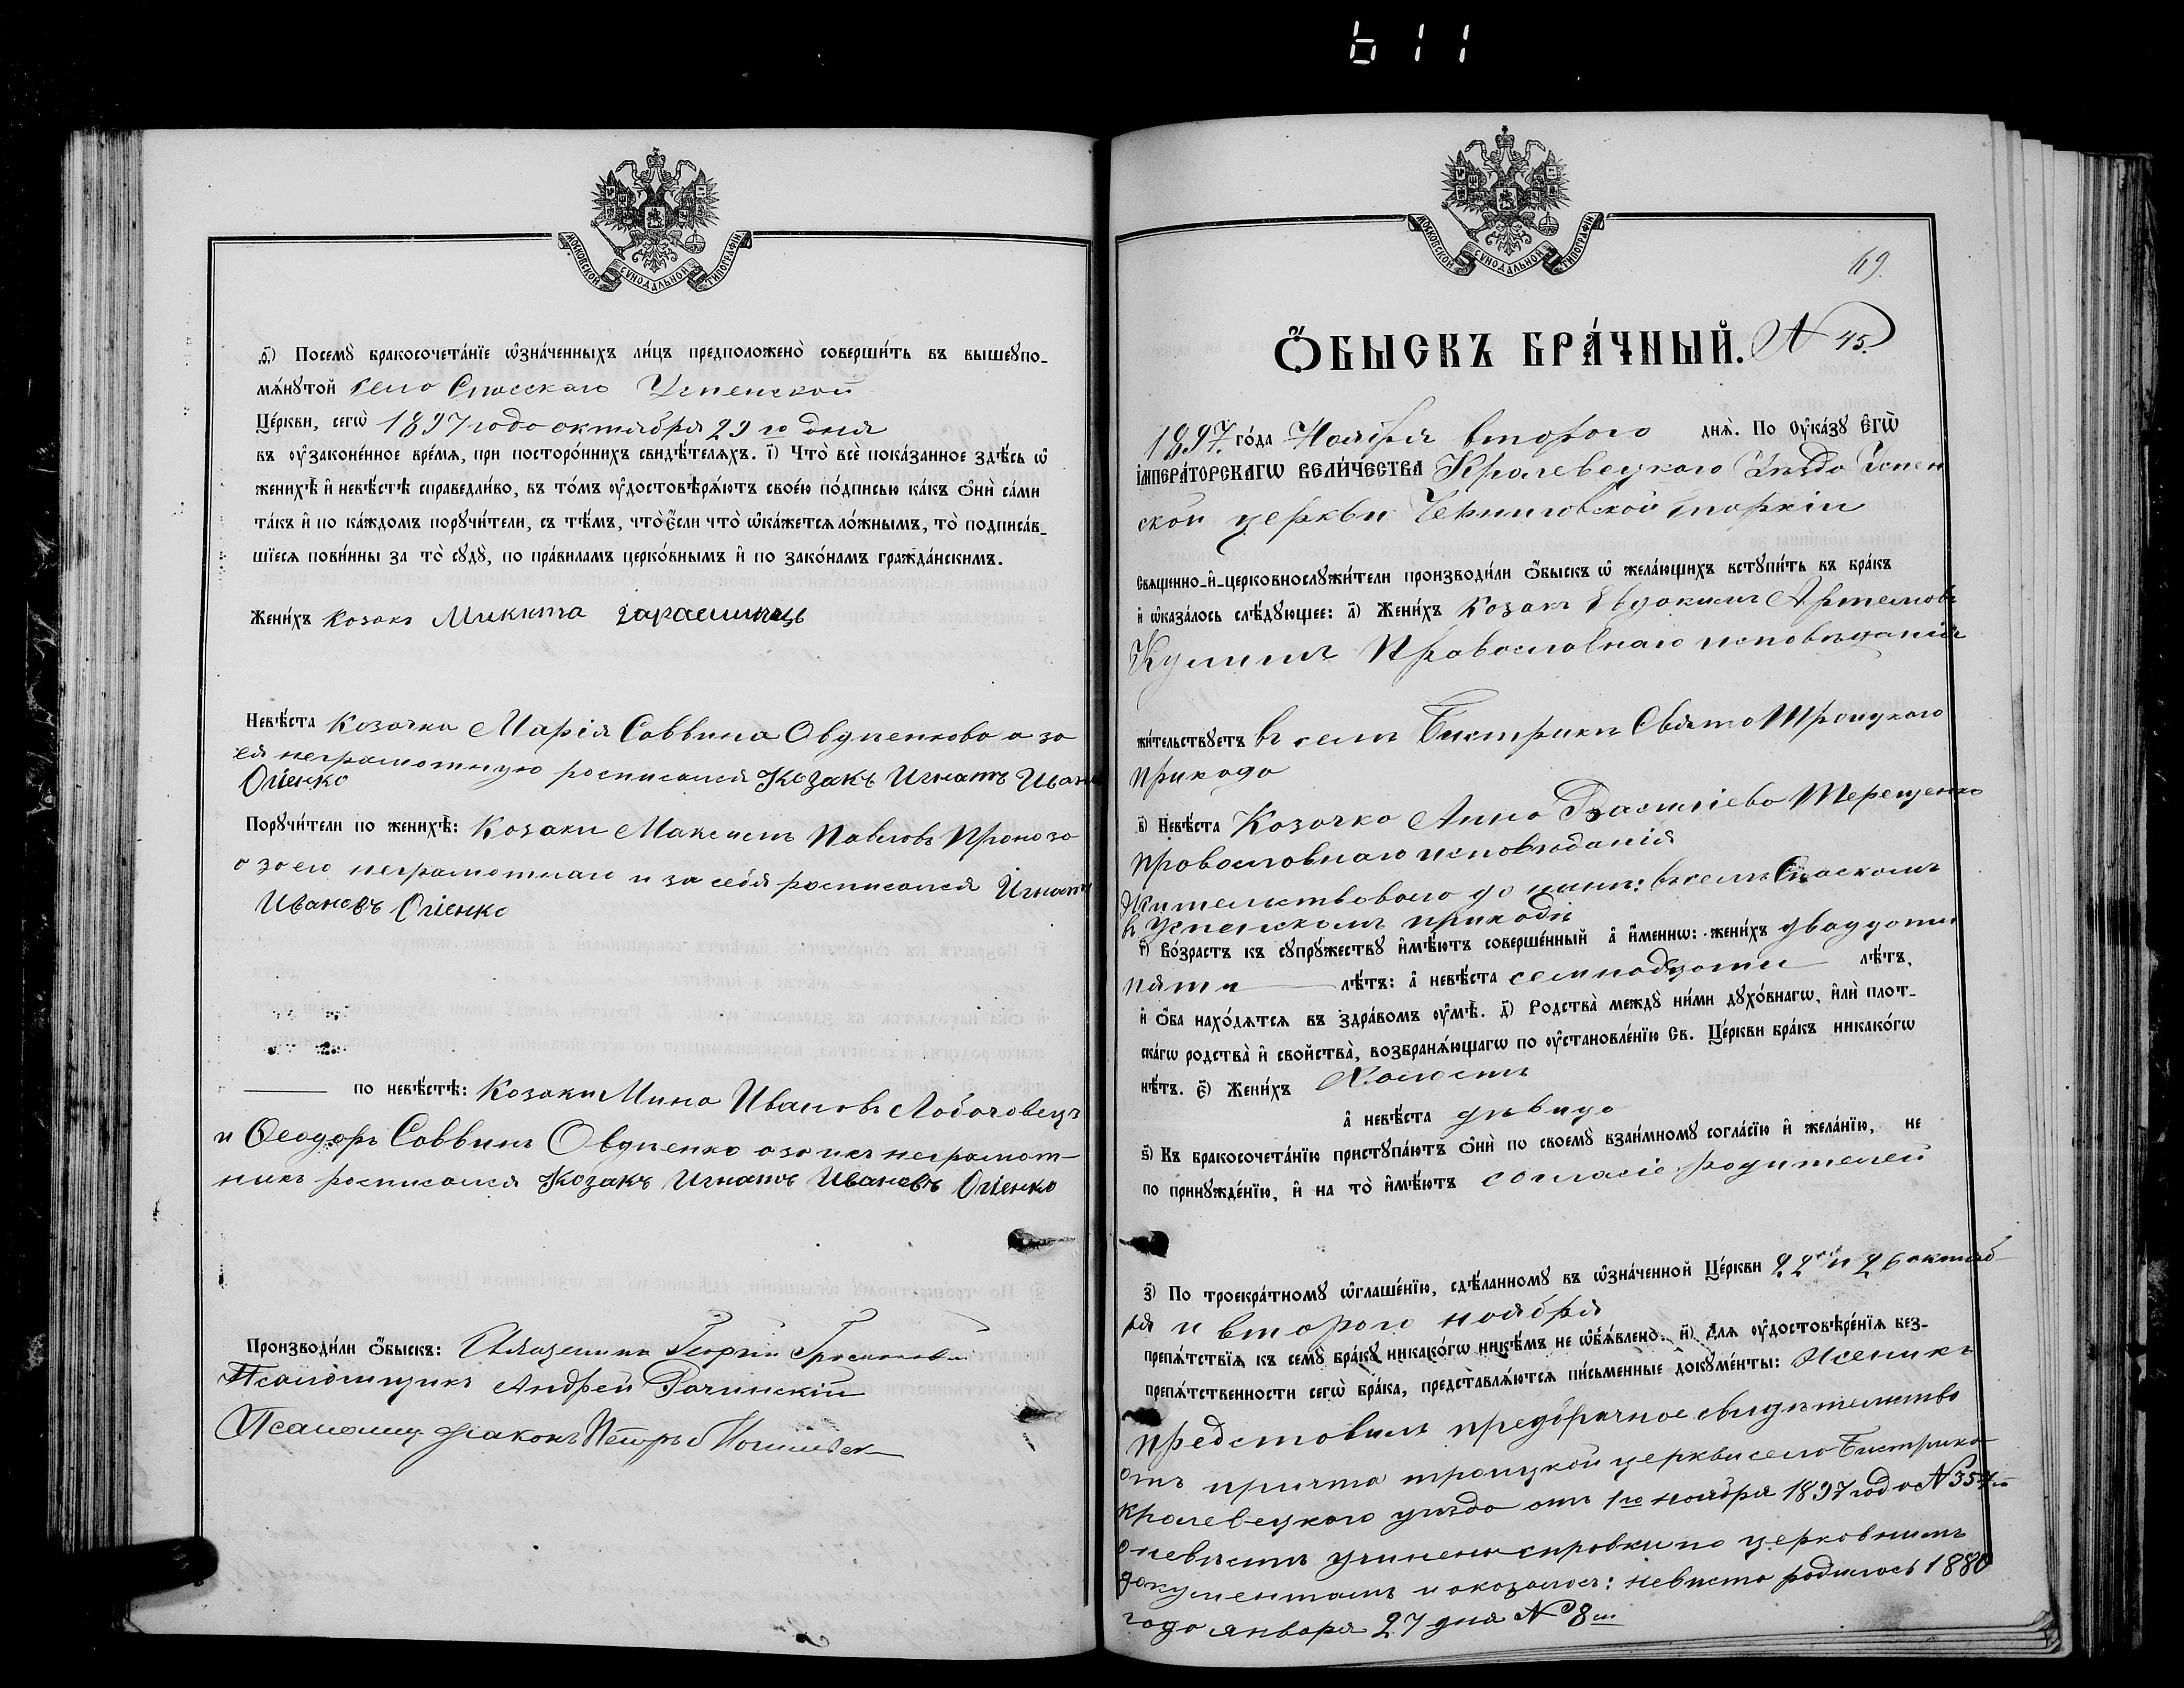 611
МОСКОВСКОЙ СѴНОДАЛЬНОЙ ТИПОГРАФІИ
ѳ҃) Посемꙋ̀ бракосочета́нїе ѡ҆зна́ченныхъ ли́цъ предположено̀ соверши́ть въ вышеꙋпо-
мѧ́нꙋтой села Спасскаго Успенской
Це́ркви, сегѡ̀ 1897 года октября 29го дня
въ ᲂу҆законе́нное вре́мѧ, при посторо́ннихъ свидѣ́телѧхъ. і҃) Что̀ всѐ пока́занное здѣ́сь ѡ҆
женихѣ̀ и҆ невѣ́стѣ справедли́во, въ то́мъ ᲂу҆достовѣрѧ́ютъ свое́ю по́дписью ка́къ ѻ҆нѝ са́ми
та́къ и҆ по ка́ждомъ порꙋчи́тели, съ тѣ́мъ, что̀ є҆́сли что̀ ѡ҆ка́жетсѧ ло́жнымъ, то̀ подписа́в-
шїесѧ пови́нны за то̀ сꙋдꙋ̀, по пра́виламъ церко́внымъ и҆ по зако́намъ гражда́нскимъ.
Жени́хъ Козакъ Микита
Невѣ́ста Козачка Марія Саввина Овдѣенкова а за
ея неграмотную росписался Козакъ Игнатъ Иванов
Огіенко
Порꙋчи́тели по женихѣ̀: Козаки Максимъ Павловъ Проноза
а за его неграмотнаго и за себя росписался Игнатъ
Ивановъ Огіенко
по невѣ́стѣ: Козаки Мина Ивановъ
и Ѳеодоръ Саввинъ Овдѣенко а за ихъ неграмот-
ныхъ росписался Козакъ Игнатъ Ивановъ Огіенко
Производи́ли ѻ҆́быскъ: Священникъ Георгій
Псаломщикъ Андрей Рачинскій
Псаломщ діаконъ Петръ
МОСКОВСКОЙ СѴНОДАЛЬНОЙ ТИПОГРАФІИ
69.
Ѻ҆́БЫСКЪ БРА́ЧНЫЙ. N 45.
1897. го́да Ноября второго днѧ̀. По ᲂу҆ка́зꙋ Є҆гѡ̀
І҆мпера́торскагѡ Вели́чества Кролевецкаго Уѣзда Успен
ской церкви Черниговской епархіи
Свѧще́нно-и҆-церковнослꙋжи́тели производи́ли ѻ҆́быскъ ѡ҆ жела́ющихъ встꙋпи́ть въ бра́къ
и҆ ѡ҆каза́лось слѣ́дꙋющее: а҃) Жени́хъ Козакъ Евдокимъ Артемовъ
Православнаго исповѣданія
жи́тельствꙋетъ въ селѣ Бистрикѣ Свято Троицкаго
прихода
в҃) Невѣ́ста Козачка Анна Василіева Терещенко
православнаго исповѣданія
жительствовала до нинѣ: въ селѣ Спаскомъ
въ Успенскомъ приходѣ
г҃) Во́зрастъ къ сꙋпрꙋ́жествꙋ и҆мѣ́ютъ соверше́нный а҆ и҆́меннѡ: жени́хъ двадцати
пяти лѣ́тъ: а҆ невѣ́ста семнадцати лѣ́тъ,
и҆ ѻ҆́ба нахо́дѧтсѧ въ здра́вомъ ᲂу҆мѣ̀. д҃) Родства̀ междꙋ̀ ни́ми дꙋхо́внагѡ, и҆лѝ плот-
ска́гѡ родства̀ и҆ сво́йства̀, возбранѧ́ющагѡ по ᲂу҆становле́нїю Св. Це́ркви бра́къ никако́гѡ
нѣ́тъ. є҃) Жени́хъ Холостъ
а҆ невѣ́ста дѣвица
ѕ҃) Къ бракосочета́нїю пристꙋпа́ютъ ѻ҆нѝ по своемꙋ̀ взаи́мномꙋ согла́сїю и҆ жела́нїю, не
по принꙋжде́нїю, и҆ на то̀ и҆мѣ́ютъ согласіе родителей
з҃) По троекра́тномꙋ ѡ҆глаше́нїю, сдѣ́ланномꙋ въ ѡ҆зна́ченной Це́ркви 22го и 26 октяб-
ря и второго ноября
препѧ́тствїѧ къ семꙋ̀ бра́кꙋ никако́гѡ никѣ́мъ не ѡ҆б̾ѧ́влено. и҃) Длѧ ᲂу҆достовѣре́нїѧ без-
препѧ́тственности сегѡ̀ бра́ка, представлѧ́ютсѧ пи́сьменные докꙋме́нты: Женихъ
представилъ предбрачное свидѣтельство
отъ причта троицкой церкви села Бистрика
кролевецкого уѣзда отъ 1го ноября 1897 года N 354й
о невѣстѣ учинены справки по церковнымъ
документамъ и оказалось: невѣста родилась 1880
года января 27 дня N 8й